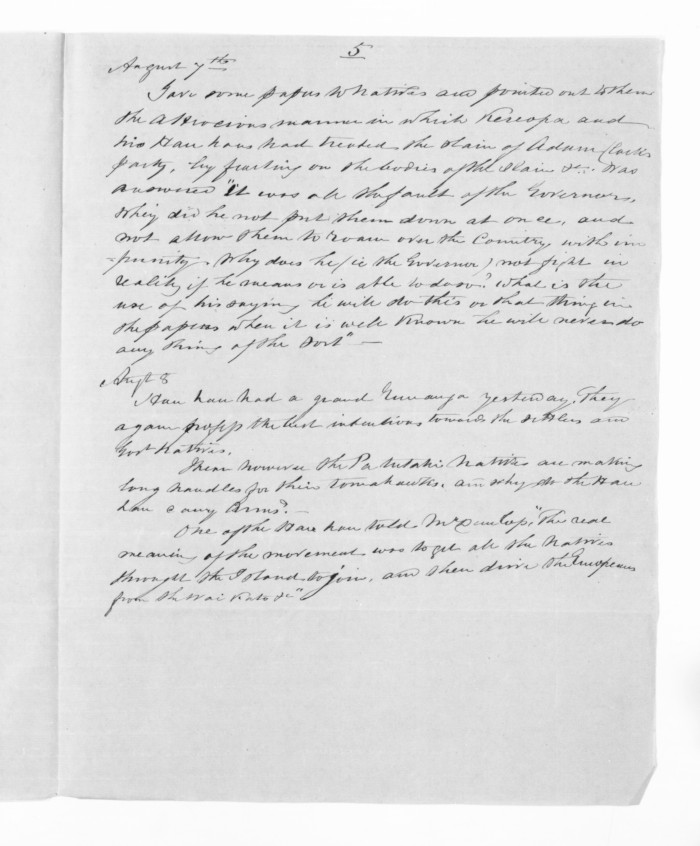 5
August 7th
Gave some papers to Natives and pointed out to them
the atrocious manner in which Kereopa and
his Hau haus had treated the slain of Adam Clarks
party, by feasting on the bodies of the slain &c. Was
answered "it was all the fault of the Governors,
Why did he not put them down at once, and
not allow them to roam over the Country with im
-punity. Why does he (ie the Governor) not fight in
reality if he means or is able to do so? What is the
use of his saying he will do this or that thing in
the papers when it is well known he will never do
any thing of the sort" —
Augt 8
Hau hau had a grand yesterday. They
again profess the best intentions towards the settlers and
Govt Natives.
I hear however the Natives are making
long handles for their tomahawks, and why do the Hau
hau carry arms? —
One of the Hau hau told Mr Dunlop, "The real
meaning of the movement was to get all the Natives
throught the Island to join, and then drive the Europeans
from the Wai Kato &c"